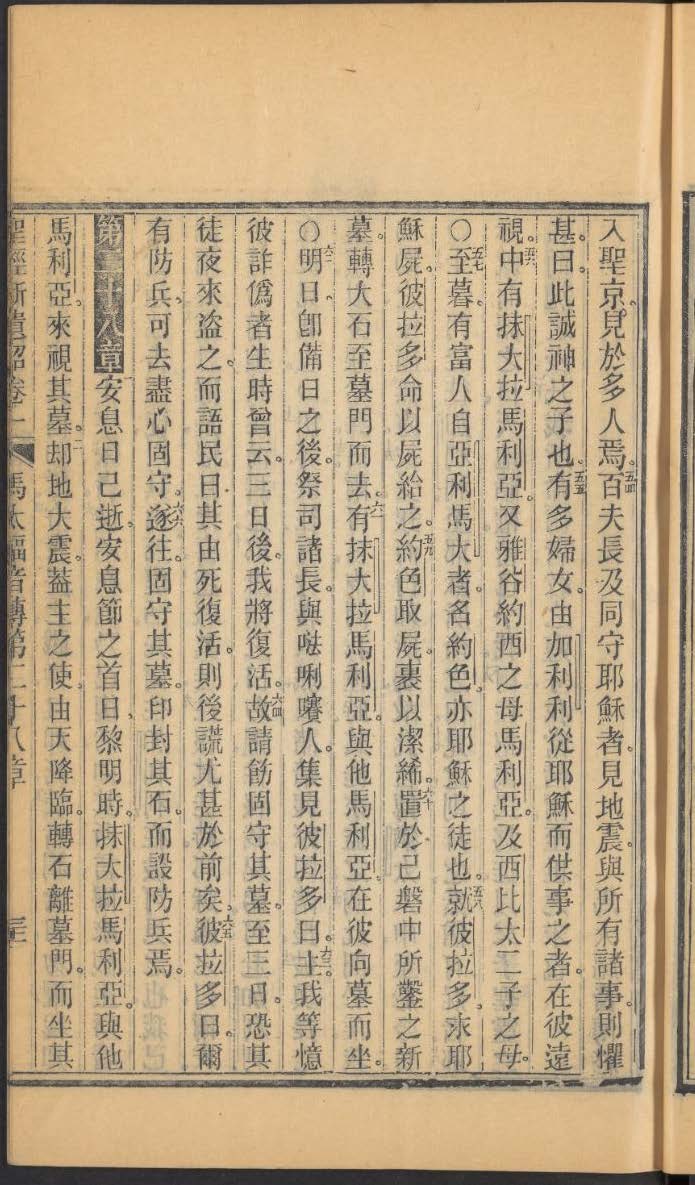 入聖京見於多人焉。五四百夫長及同守耶穌者見地震。與所有諸事。則懼
甚。曰。此誠神之子也。五五有多婦女。由加利利從耶穌而供事之者。在彼遠
視。五六中有抹大拉馬利亞。又雅谷約西之母馬利亞。及西比太二子之母。
〇五七至暮。有富人自亞利馬大者。名約色。亦耶穌之徒也。五八就彼拉多。求耶
穌屍。彼拉多命以屍給之。五九約色取屍。裹以潔絺。六十置於己磐中所鑿之新
墓。轉大石至墓門而去。六一有抹大拉馬利亞。與他馬利亞。在彼向墓而坐。
〇六二明日。卽備日之後。祭司諸長。與𠵽唎㘔人。集見彼拉多曰。六三主。我等憶
彼詐僞者生時曾云。三日後。我將復活。六四故請飭固守其墓。至三日。恐其
徒夜來盗之。而語民曰。其由死復活。則後謊尤甚於前矣。六五彼拉多曰。爾
有防兵。可去盡心固守。六六遂往。固守其墓。印封其石。而設防兵焉。
第二十八章安息日已逝。安息節之首日。黎明時。抹大拉馬利亞。與他
馬利亞。來視其墓。二却地大震。葢主之使。由天降臨。轉石離墓門。而坐其
聖經新遺詔卷一 馬太福音傳第二十八章